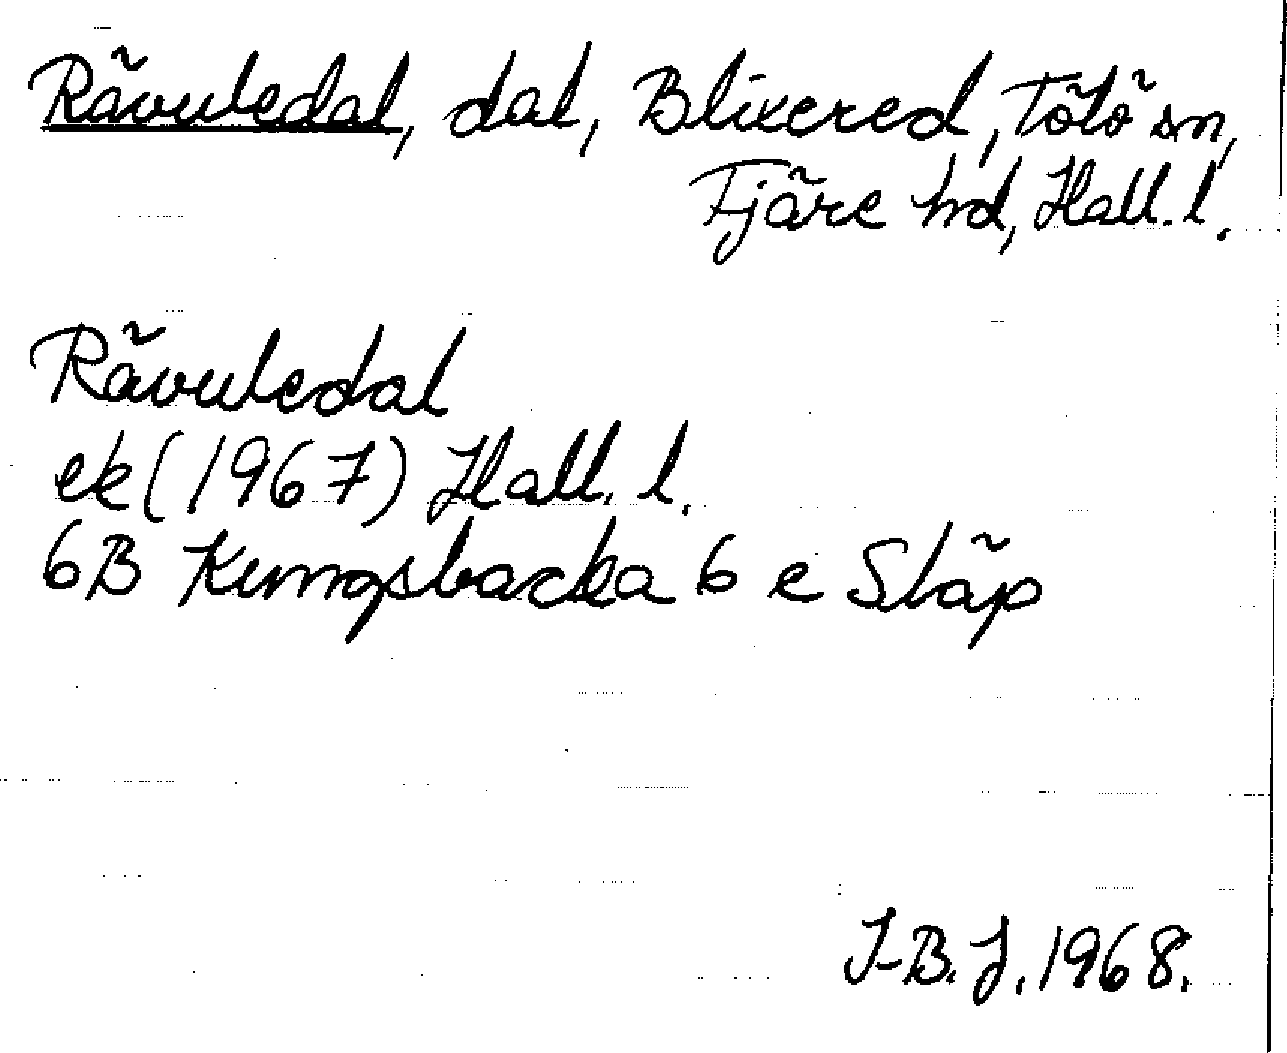 Rävuledal, dal, Blixered, Tölö sn,
Fjäre hd, Hall. l.
Rävuledal
ek (1967) Hall. l.
6B Kungsbacka 6 e Släp
I-B. J. 1968.